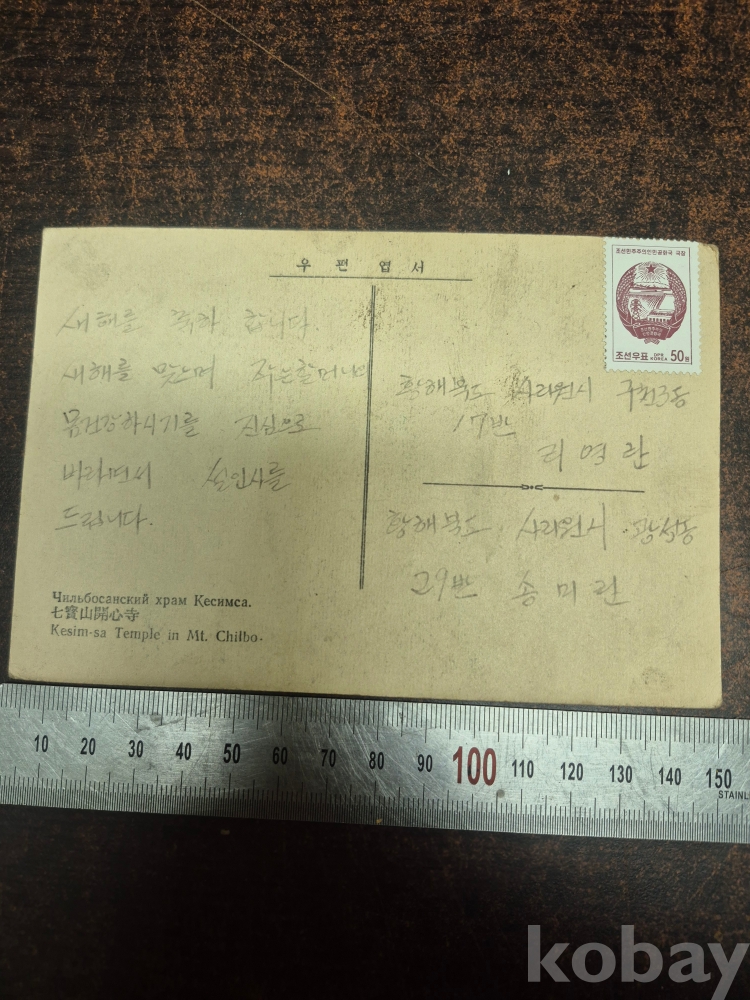 우편엽서
조선민주주의인민공화국 국장
조선우표 DPR KOREA 50원
새해를 축하 합니다.
새해를 맞으며 작은할머니의
몸건강하시기를 진심으로
바라면서 설인사를
드립니다.
황해북도 사리원시 구천3동
17반
리영란
황해북도 사리원시 광석동
29반 송미란
Чильбосанский храм Кесимса.
七寶山開心寺
Kesim-sa Temple in Mt. Chilbo.
10 20 30 40 50 60 70 80 90 100 110 120 130 140 150
STAINL
kobay